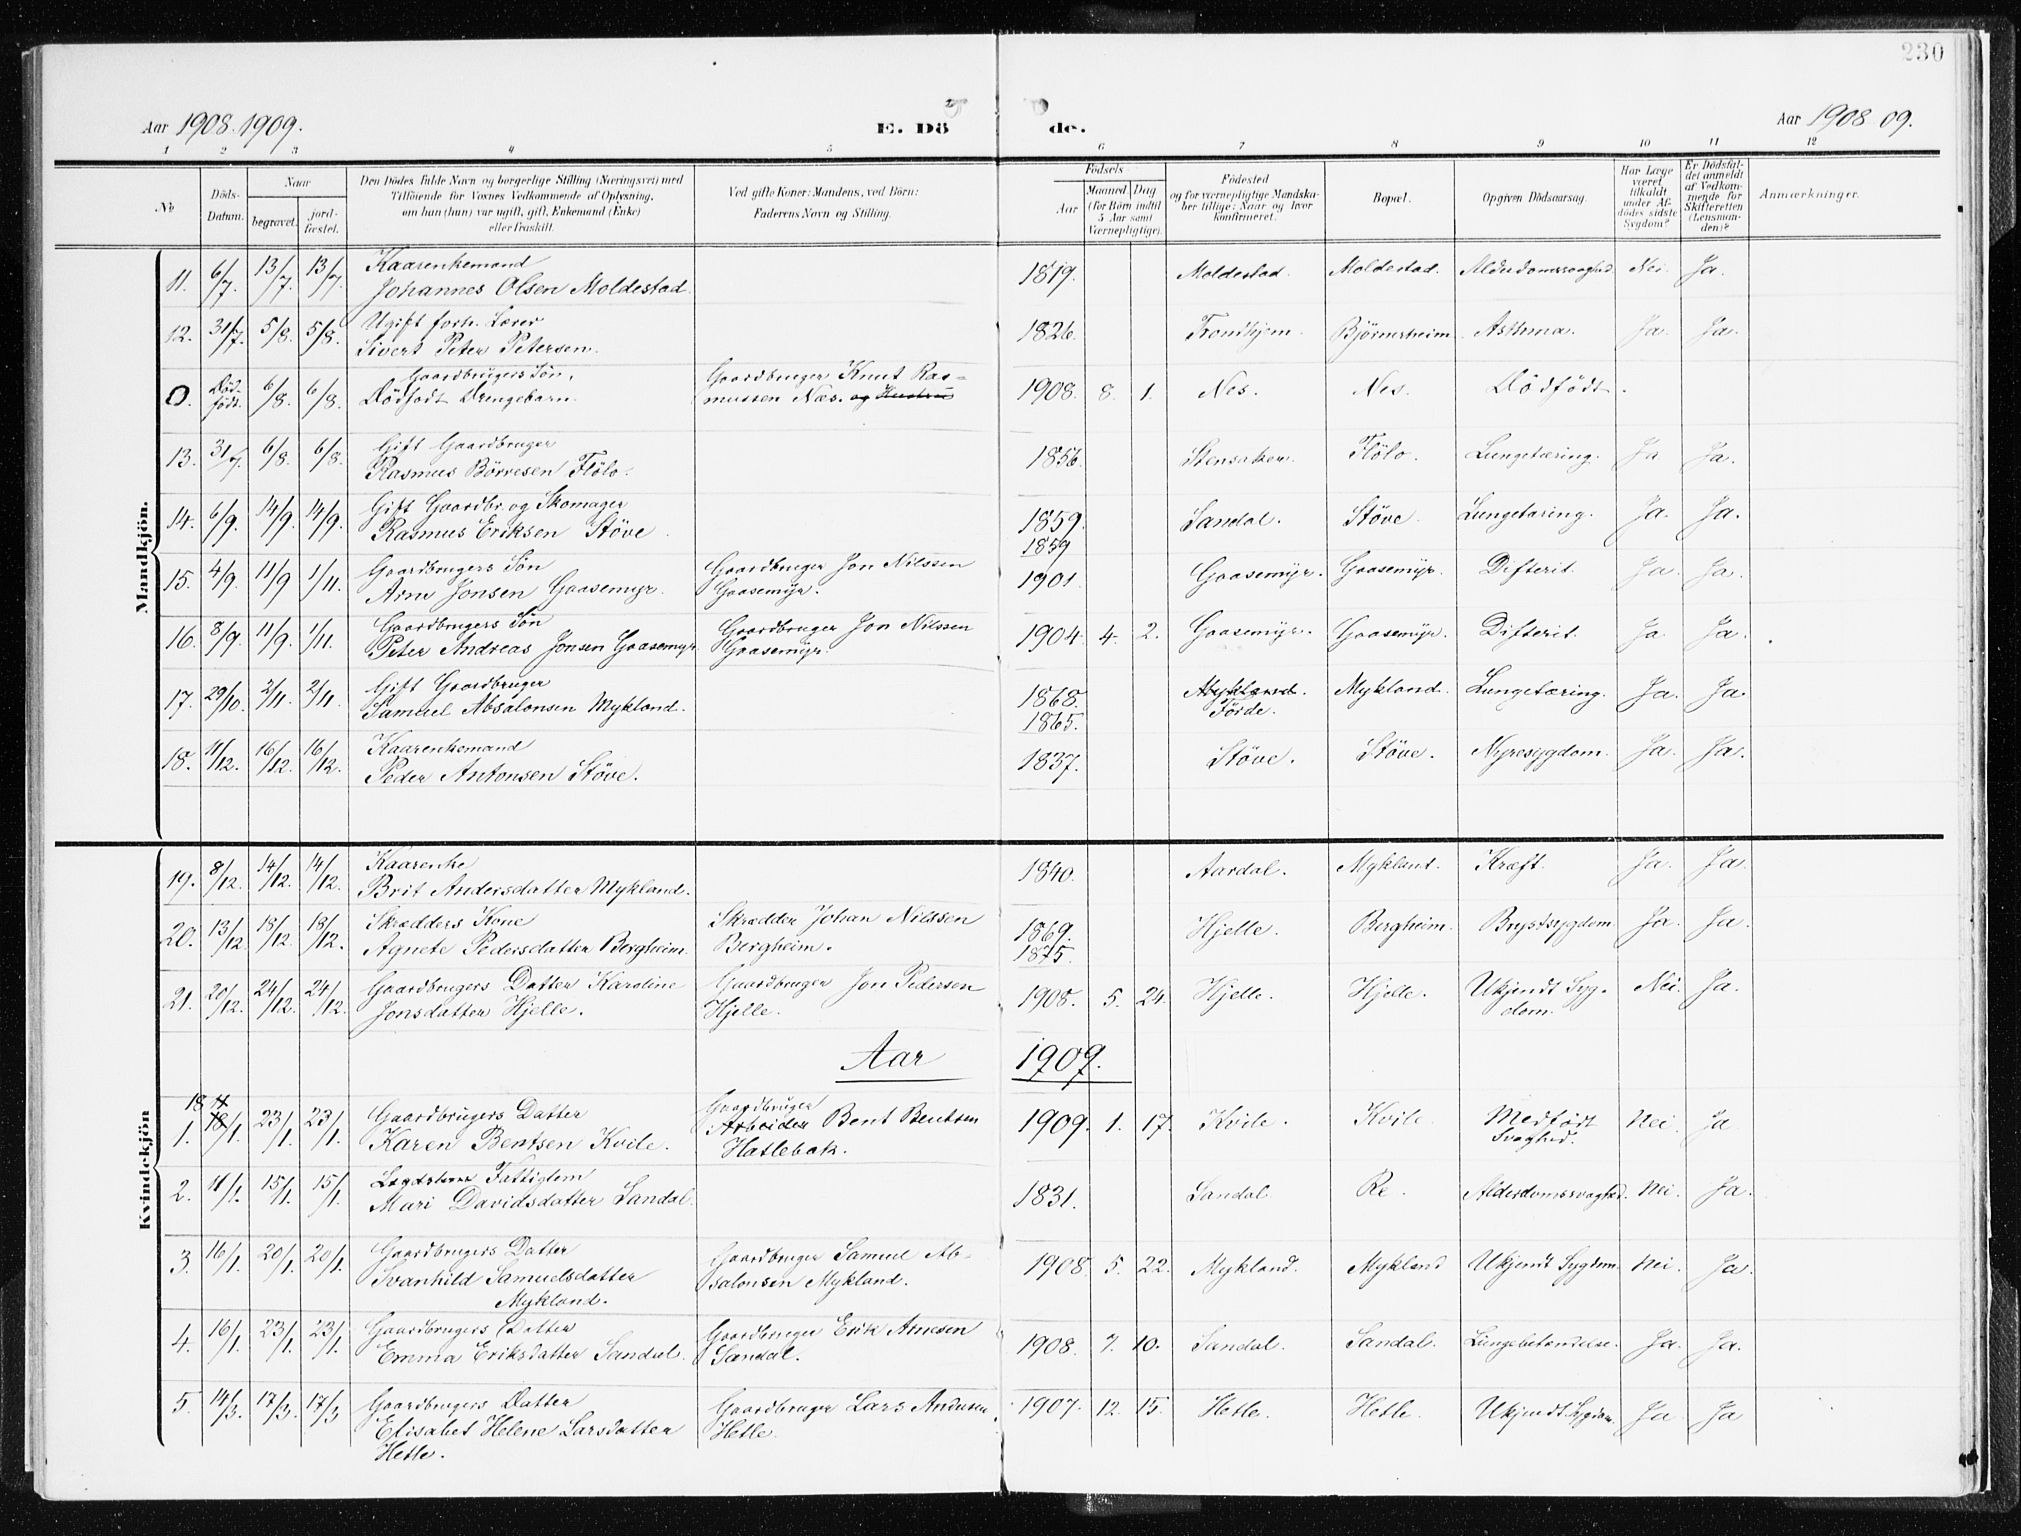 230
Aar 1908. 1909.
E. Dö
de.
Aar 1908 09.
1 2 3 4 5 6 7 8 9 10 11 12
No
Döds-Datum.
Naar
begravet.
jord-fæstet.
Den Dödes fulde Navn og borgerlige Stilling (Næringsvei) med
Tilföiende for Voxnes Vedkommende af Oplysning,
om han (hun) var ugift, gift, Enkemand (Enke)
eller fraskilt.
Ved gifte Koner: Mandens, ved Börn:
Faderens Navn og Stilling.
Födsels-
Aar
Maaned Dag
(for Börn indtil
5 Aar samt
Værnepligtige).
Födested
og for værnepligtige Mandska-
ber tillige: Naar og hvor
konfirmeret.
Bopæl.
Opgiven Dödsaarsag.
Har Læge
været
tilkaldt
under Af-
dödes sidste
Sygdom?
Er Dödsfal-
det anmeldt
af Vedkom-
mende for
Skifteretten
(Lensman-
den)?
Anmærkninger.
Mandkjön.
11. 6/7. 13/7. 13/7. Kaarenkemand
Johannes Olsen Moldestad. 1819. Moldestad. Moldestad. Alderdomssvaghed. Nei. Ja.
12. 31/7. 5/8. 5/8. Ugift forh. Lærer
Sivert Peter Petersen. 1826. Trondhjem. Björnsheim. Asthma. Ja. Ja.
0. Död-født. 6/8. 6/8. Gaardbrugers Sön,
Dödfødt Drengebarn. Gaardbruger Knut Ras-
mussen Næs. og Hustru 1908. 8. 1. Nes. Nes. Dödfödt.
13. 31/7. 6/8. 6/8. Gift Gaardbruger
Rasmus Börresen Flölo. 1856. Stensaker. Flölo. Lungetæring. Ja Ja.
14. 6/9. 14/9. 14/9. Gift Gaardbr. og Skomager
Rasmus Eriksen Stöve 1859.
1859 Sandal. Stöve. Lungetæring. Ja. Ja.
15. 4/9. 11/9 1/11. Gaardbrugers Sön
Arne Jonsen Gaasemyr. Gaardbruger Jon Nilssen
Gaasemyr. 1901. Gaasemyr. Gaasemyr. Difterit. Ja. Ja.
16. 8/9. 11/9. 1/11. Gaardbrugers Sön
Peter Andreas Jonsen Gaasemyr. Gaardbruger Jon Nilssen
Gaasemyr. 1904. 4. 2. Gaasemyr. Gaasemyr. Difterit. Ja. Ja.
17. 29/10. 2/11. 2/11. Gift Gaardbruger
Samuel Absalonsen Mykland. 1868.
1865. Mykland.
Förde. Mykland. Lungetæring. Ja. Ja.
18. 11/12. 16/12. 16/12. Kaarenkemand
Peder Antonsen Stöve. 1837. Stöve. Stöve. Nyresygdom. Ja. Ja.
Kvindekjön
19. 8/12. 14/12. 14/12. Kaarenke
Brit Andersdatter Mykland. 1840. Aardal. Mykland. Kræft. Ja. Ja.
20. 13/12 18/12. 18/12. Skrædders Kone
Agnete Pedersdatter Bergheim. Skrædder Johan Nilssen
Bergheim. 1869.
1875. Hjelle. Bergheim. Brystsygdom. Ja. Ja.
21. 20/12. 24/12. 24/12. Gaardbrugers Datter Karoline
Jonsdatter Hjelle. Gaardbruger Jon Pedersen
Hjelle. 1908. 5. 24. Hjelle. Hjelle. Ukjendt Syg-
dom. Nei. Ja.
Aar 1909.
1. 18/1. 23/1. 23/1. Gaardbrugers Datter
Karen Bentsen Kvile. Gaardbruger
Arbeider Bent Bentsen
Hatlebak. 1909. 1. 17. Kvile. Kvile. Medfödt
Svaghed. Nei. Ja
2. 11/1. 15/1. 15/1. Fattiglem
Mari Davidsdatter Sandal. 1831. Sandal Re. Alderdomssvaghed. Nei. Ja.
3. 16/1. 20/1. 20/1. Gaardbrugers Datter
Svanhild Samuelsdatter
Mykland. Gaardbruger Samuel Ab-
salonsen Mykland. 1908. 5. 22. Mykland. Mykland Ukjendt Sygdom. Nei. Ja.
4. 16/1. 23/1. 23/1. Gaardbrugers Datter
Emma Eriksdatter Sandal. Gaardbruger Erik Arnesen
Sandal. 1908. 7. 10. Sandal. Sandal. Lungebetændelse. Ja. Ja.
5. 14/3. 17/3. 17/3 Gaardbrugers Datter
Elisabet Helene Larsdatter
Hetle. Gaardbruger Lars Andersen
Hetle. 1907. 12. 15. Hetle. Hetle. Ukjendt Sygdom. Ja. Ja